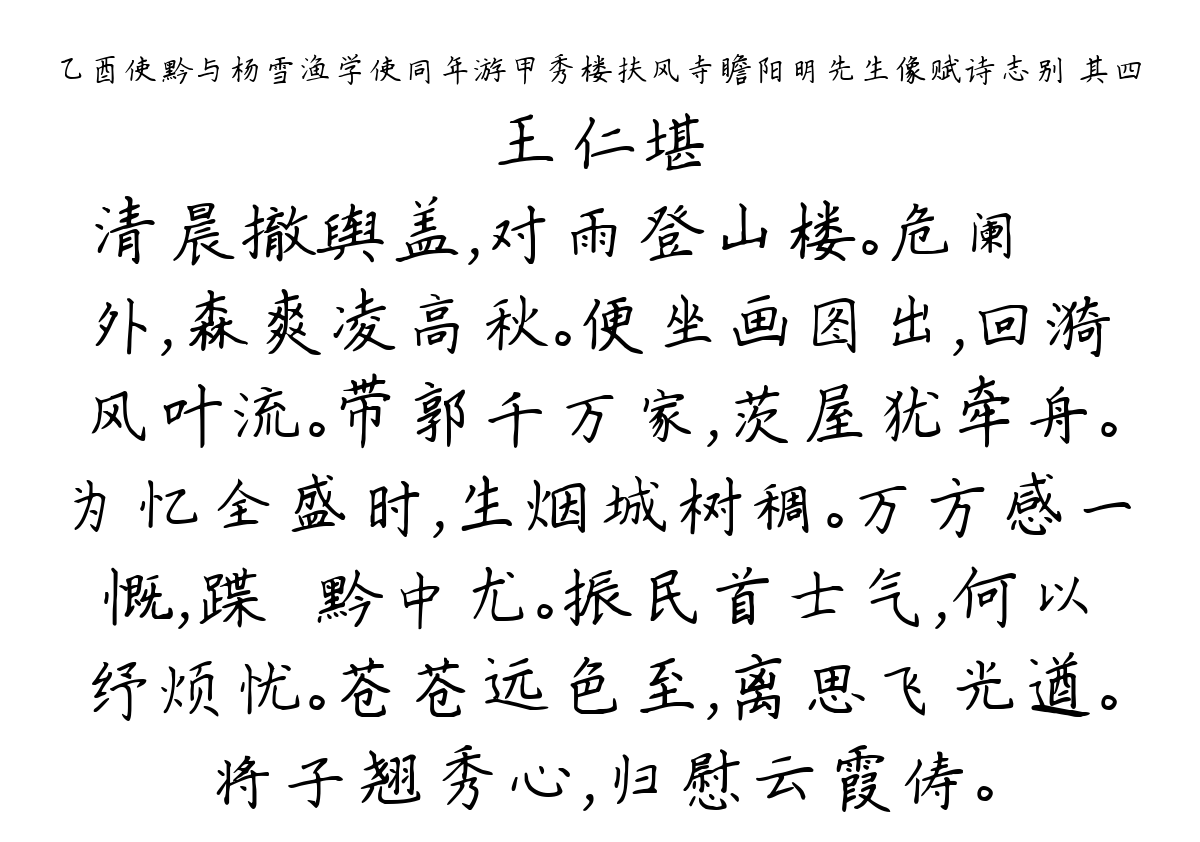 乙酉使黔与杨雪渔学使同年游甲秀楼扶风寺瞻阳明先生像赋诗志别 其四
王仁堪
清晨撤舆盖,对雨登山楼。危阑
外,森爽凌高秋。便坐画图出,回漪
风叶流。带郭千万家,茨屋犹牵舟。
为忆全盛时,生烟城树稠。万方感一
慨,蹀 黔中尤。振民首士气,何以
纾烦忧。苍苍远色至,离思飞光遒。
将子翘秀心,归慰云霞俦。